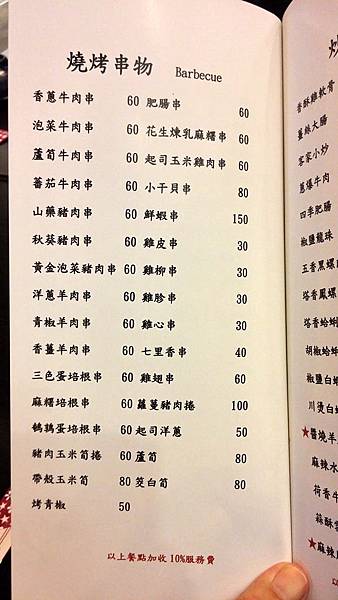 燒烤串物 Barbecue
香蔥牛肉串 60 肥腸串 60
泡菜牛肉串 60 花生煉乳麻糬串 60
蘆筍牛肉串 60 起司玉米雞肉串 60
蕃茄牛肉串 60 小干貝串 80
山藥豬肉串 60 鮮蝦串 150
秋葵豬肉串 60 雞皮串 30
黃金泡菜豬肉串 60 雞柳串 30
洋蔥羊肉串 60 雞胗串 30
青椒羊肉串 60 雞心串 30
香薑羊肉串 60 七里香串 40
三色蛋培根串 60 雞翅串 60
麻糬培根串 60 蘿蔓豬肉捲 100
鵪鶉蛋培根串 60 起司洋蔥 50
豬肉玉米筍捲 60 蘆筍 80
帶殼玉米筍 80 筊白筍 80
烤青椒 50
以上餐點加收10%服務費
炒
香酥雞軟骨
薑絲大腸
客家小炒
蔥爆牛肉
四季肥腸
椒鹽龍珠
五香黑螺
塔香鳳螺
塔香蛤蜊
胡椒蛤蜊
椒鹽白蝦
川燙白蝦
★醬燒羊
麻辣水
荷香牛
蒜酥
★麻辣